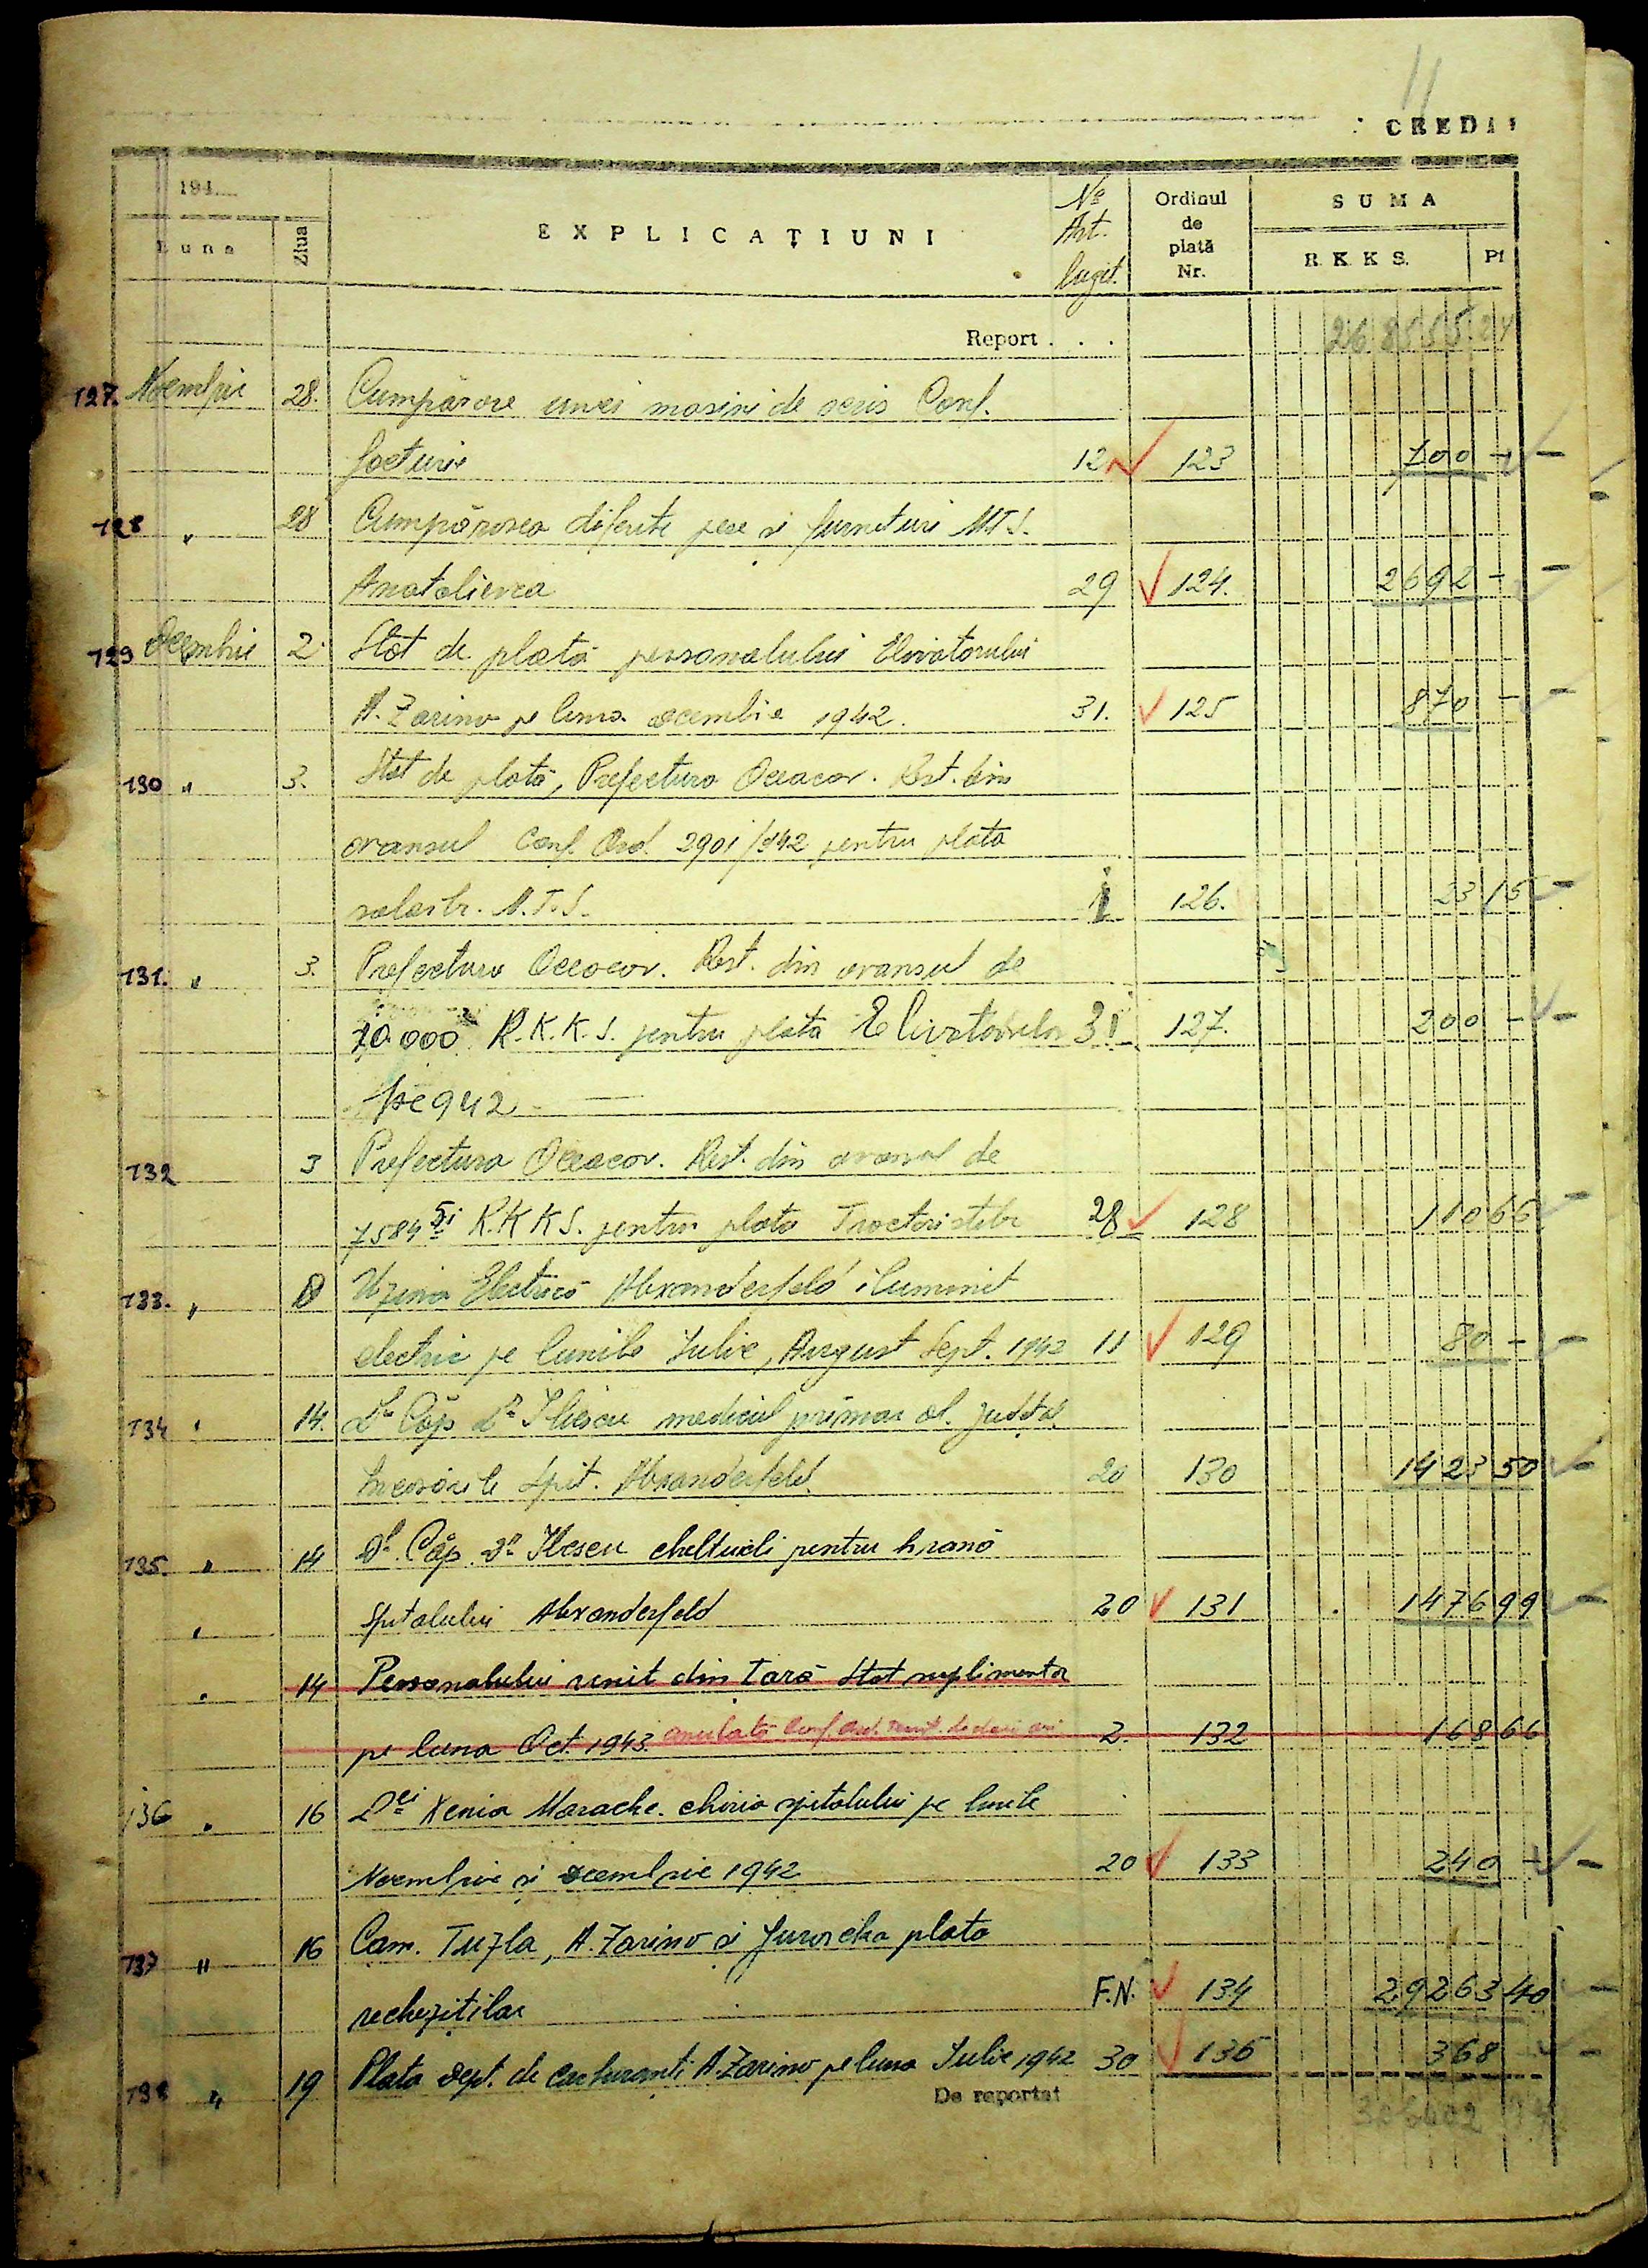 11
CREDIT
194
Luna Ziua EXPLICAȚIUNI No Art. buget. Ordinul de plată Nr. SUMA R.K.K.S. Pf
Report . . . 268555.24
127. Noembrie 28. Cumpărare unei masini de scris Conf.
facturii 12 123 700 -
128 " 28 Cumpărarea diferite piese si furnituri M.T.S.
Anatolievca 29 124. 2692 -
129 Decembrie 2. Stat de plată personalului Elivatorului
A. Zarino pe luna decembrie 1942. 31. 125 870 -
130 " 3. Stat de plată, Prefectura Oceacov. Rest. din
avansul Conf. Ord. 2901/942 pentru plata
salariilr. M.T.S. 1 126. 23 15
131. " 3. Prefectura Oceacov. Rest. din avansul de
10.000 R.K.K.S. pentru plata Elivatorilor 31 127. 200 -
942
132 3 Prefectura Oceacov. Rest. din avansul de
7584 51 R.K.K.S. pentru plata Tractoristilr 28 128 110 66
133. " 8 Uzina Electrică Alexanderfeld iluminit
electric pe lunile Iulie, August Sept. 1942 11 129 80 -
134 " 14. Dl. Căp. Dr. Iliescu medicul primar al. Judetul
Spit. Alexanderfeld. 20 130 1423 50
135. " 14 Dl. Căp. Dr. Iliescu cheltueli pentru hrană
" Spitalului Alexanderfeld 20 131 1476 99
" 14 Personalului venit din tară Stat suplimentar
pe luna Oct. 1943. anulată Conf. Ord. 2. 132 168 66
136 " 16 Dei Xenia Marache. chiria spitalului pe lunile
Noembrie si decembrie 1942 20 133 240 -
137 " 16 Cam. Tuzla, A. Zarino si Jurovcka plata
rechizitilor F.N. 134 29263 40
138 " 19 Plata dept. de Carburanti A. Zarino pe luna Iulie 1942 30 136 368 -
De reportat